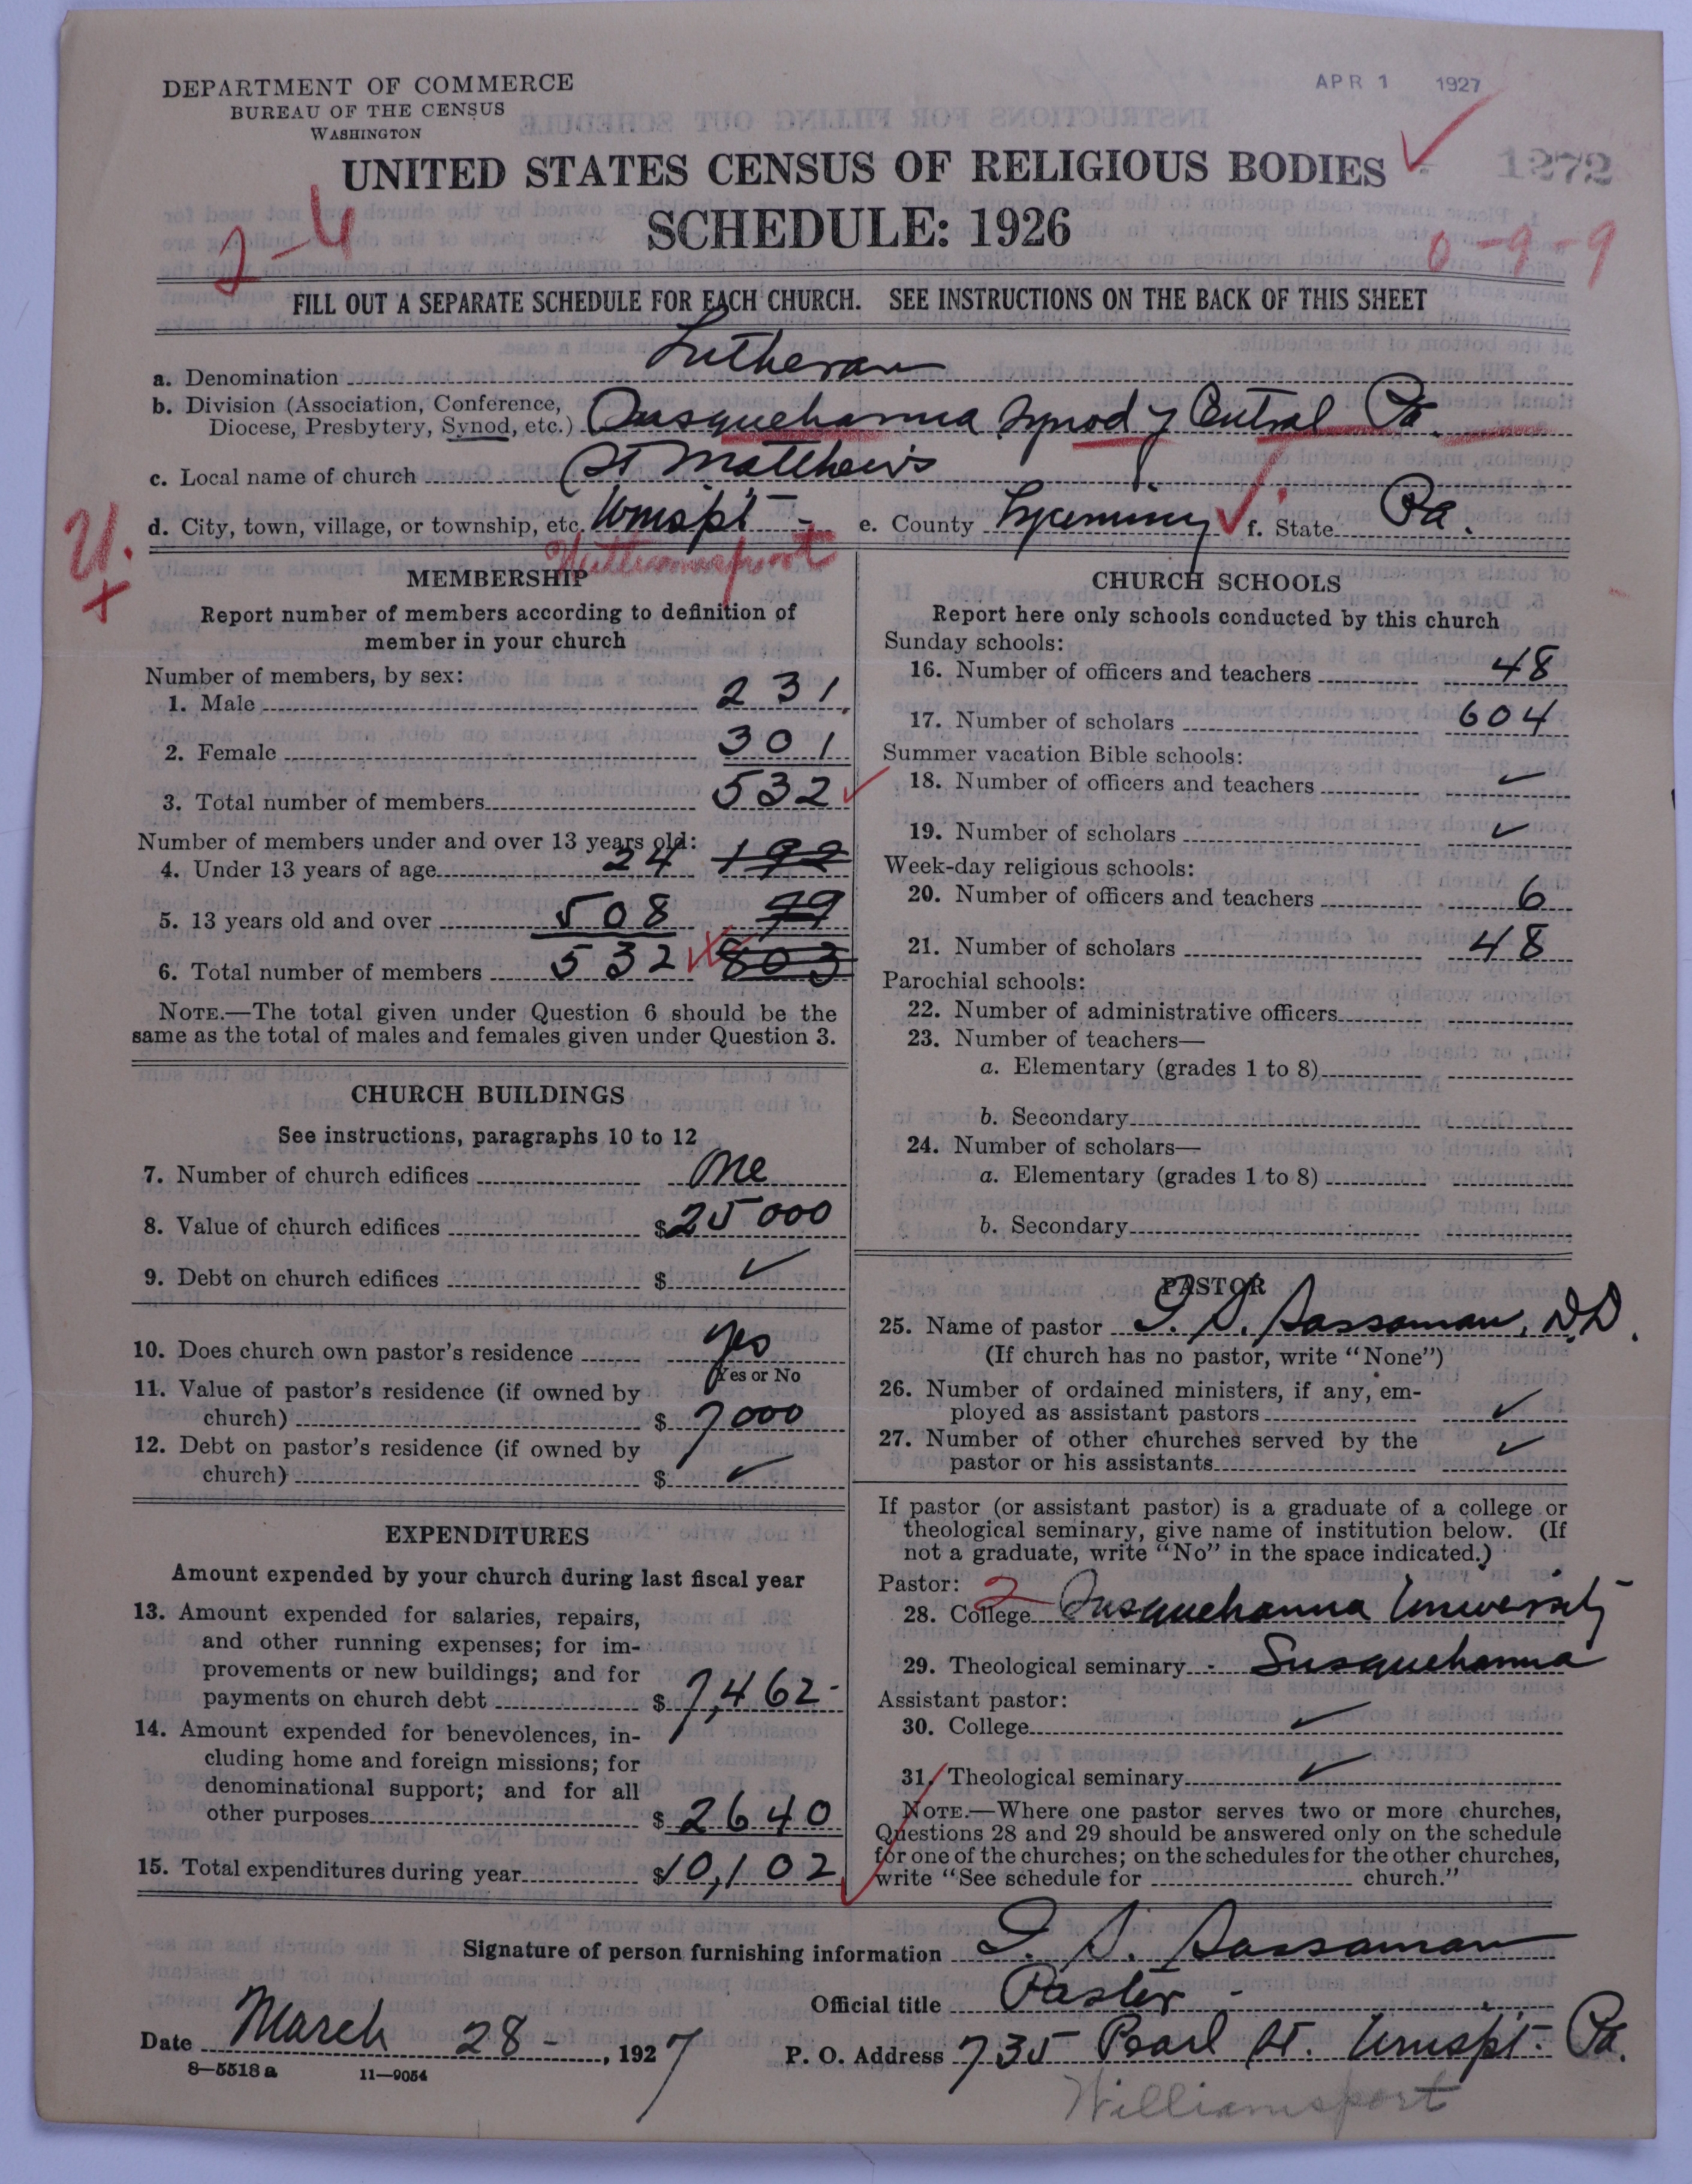 DEPARTMENT OF COMMERCE
BUREAU OF THE CENSUS
WASHINGTON
APR 1 1927
1272
UNITED STATES CENSUS OF RELIGIOUS BODIES
SCHEDULE: 1926
2-4
0-9-9
FILL OUT A SEPARATE SCHEDULE FOR EACH CHURCH. SEE INSTRUCTIONS ON THE BACK OF THIS SHEET
a. Denomination Lutheran
b. Division (Association, Conference, Diocese, Presbytery, Synod, etc.) Susquehanna Synod of Central Pa.
c. Local name of church St Matthew's
d. City, town, village, or township, etc. Wmspt - e. County Lycoming f. State Pa.
Williamsport
U.
x
MEMBERSHIP
Report number of members according to definition of
member in your church
Number of members, by sex:
1. Male 231
2. Female 301
3. Total number of members 532
Number of members under and over 13 years old:
4. Under 13 years of age 24 192
5. 13 years old and over 508
6. Total number of members 532 803
NOTE.—The total given under Question 6 should be the
same as the total of males and females given under Question 3.
CHURCH BUILDINGS
See instructions, paragraphs 10 to 12
7. Number of church edifices One
8. Value of church edifices $25000
9. Debt on church edifices $ ✓
10. Does church own pastor's residence yes
Yes or No
11. Value of pastor's residence (if owned by
church) $ 7000
12. Debt on pastor's residence (if owned by
church) $ ✓
EXPENDITURES
Amount expended by your church during last fiscal year
13. Amount expended for salaries, repairs,
and other running expenses; for im-
provements or new buildings; and for
payments on church debt $ 7,462-
14. Amount expended for benevolences, in-
cluding home and foreign missions; for
denominational support; and for all
other purposes $ 2640
15. Total expenditures during year $10,102
CHURCH SCHOOLS
Report here only schools conducted by this church
Sunday schools:
16. Number of officers and teachers 48
17. Number of scholars 604
Summer vacation Bible schools:
18. Number of officers and teachers ✓
19. Number of scholars ✓
Week-day religious schools:
20. Number of officers and teachers 6
21. Number of scholars 48
Parochial schools:
22. Number of administrative officers
23. Number of teachers—
a. Elementary (grades 1 to 8)
b. Secondary
24. Number of scholars—
a. Elementary (grades 1 to 8)
b. Secondary
PASTOR
25. Name of pastor I. S. Sassaman, D.D.
(If church has no pastor, write "None")
26. Number of ordained ministers, if any, em-
ployed as assistant pastors ✓
27. Number of other churches served by the
pastor or his assistants ✓
If pastor (or assistant pastor) is a graduate of a college or
theological seminary, give name of institution below. (If
not a graduate, write "No" in the space indicated.)
Pastor: 2
28. College Susquehanna University
29. Theological seminary Susquehanna
Assistant pastor:
30. College ✓
31. Theological seminary ✓
NOTE.—Where one pastor serves two or more churches,
Questions 28 and 29 should be answered only on the schedule
for one of the churches; on the schedules for the other churches,
write "See schedule for church."
Signature of person furnishing information I. S. Sassaman
Official title Pastor -
Date March 28-, 1927 P. O. Address 735 Pearl St. Wmspt. Pa.
8—5518a 11—9054
Williamsport